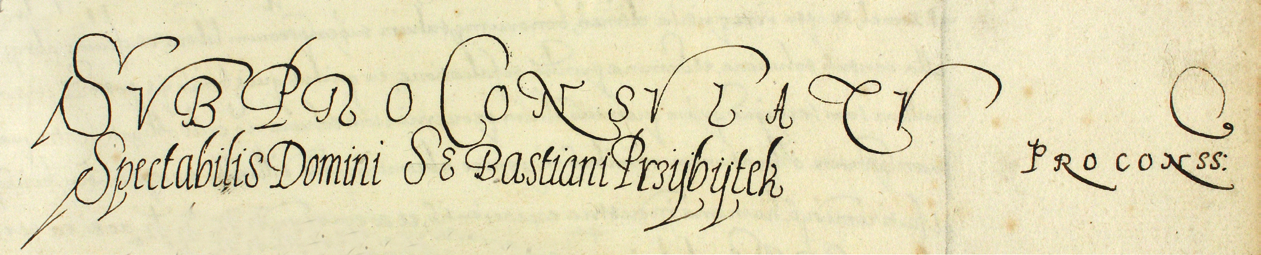 SVB PRO CONSVLATV
Spectabilis Domini SEBastiani Przÿbÿtek
PROCONSS: